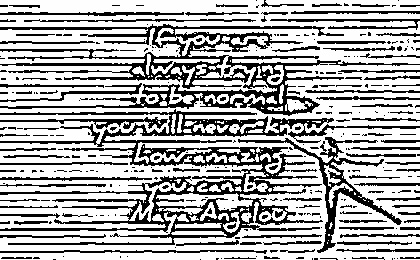 If you are
always trying
to be normal
you will never know
how amazing
you can be.
Maya Angelou